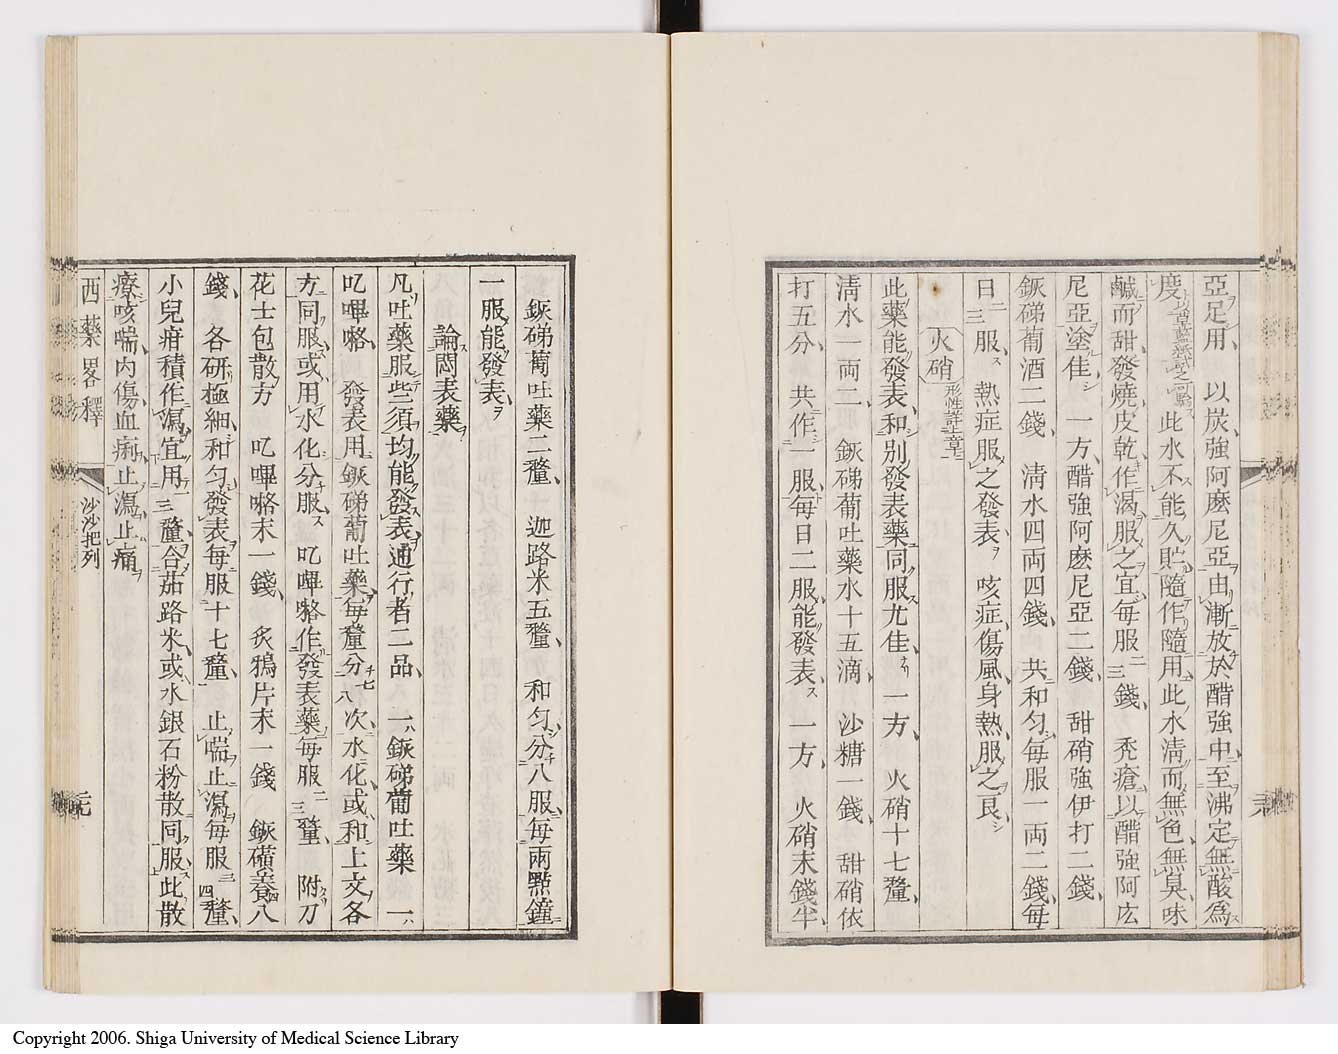 亞足用 以炭強阿麼尼亞由漸放於醋強中至沸定無酸爲
度 此水不能久貯隨作隨用此水淸而無色無臭味
鹹而甜發燒皮乾作渴服之宜每服二三錢 禿瘡以醋強阿広
尼亞塗佳 一方醋強阿麼尼亞二錢 甜硝強伊打二錢
鋉硪葡酒二錢 淸水四両四錢 共和匀每服一両二錢每
日二三服 熱症服之發表 咳症傷風身熱服之良
火硝 形性詳上章
此藥能發表和別發表藥同服尤佳 一方 火硝十七釐
淸水一両二 鋉硪葡吐藥水十五滴 沙糖一錢 甜硝依
打五分 共作一服每日二服能發表 一方 火硝末錢半
鋉硪葡吐藥二釐 迦路米五釐 和匀分八服每兩點鐘
一服能發表
論悶表藥
凡吐藥服些須均能發表通行者二品 一鋉硪葡吐藥 一
吃嗶咯 發表用鋉硪葡吐藥每釐分七八次水化或和上文各
方同服或用水化分服 吃嗶咯作發表藥每服二三釐 附刀
花士包散方 吃嗶咯末一錢 炙鴉片末一錢 鋉礦養四八
錢 各硏極細和匀發表每服十七釐 止喘止瀉每服三四釐
小兒疳積作瀉宜用一三釐合茄路米或水銀石粉散同服此散
療咳喘內傷血痢止瀉止痛
西藥畧釋
沙沙把列
Copyright 2006. Shiga University of Medical Science Library